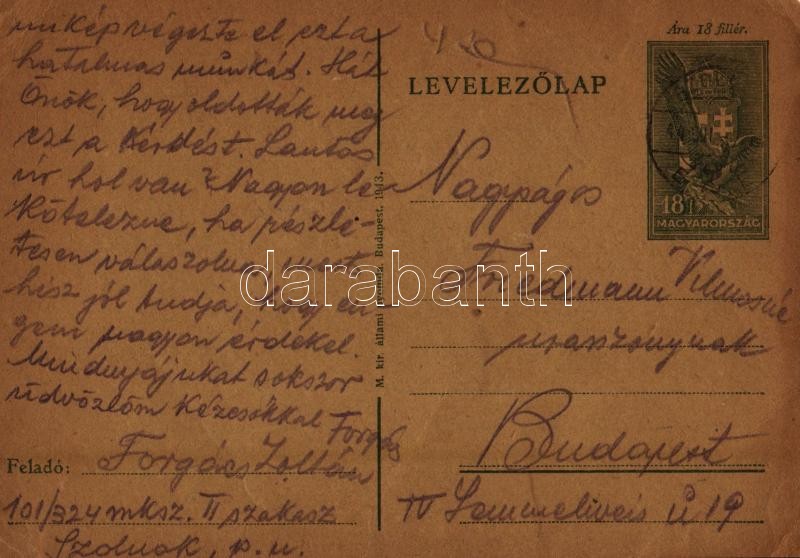 miképvégezte el ezt a
hatalmas munkát. Hát
Önök, hogy oldották meg
ezt a kérdést. Lantos
úr hol van? Nagyon le
kötelezne, ha részle-
tesen válaszolna, mert
hisz jól tudja, hogy en
gem nagyon érdekel.
Mindnyájukat sokszor
üdvözlöm kézcsókkal Forgács
Feladó: Forgács Zoltán
101/324 mksz. II szakasz
Szolnok, p. u.
M. kir. állami nyomda, Budapest. 1943.
Ára 18 fillér.
LEVELEZŐLAP
18
MAGYARORSZÁG
Nagyságos
Friedmann Vilmosné
uraasszonynak
Budapest
IV ú 19
darabanth